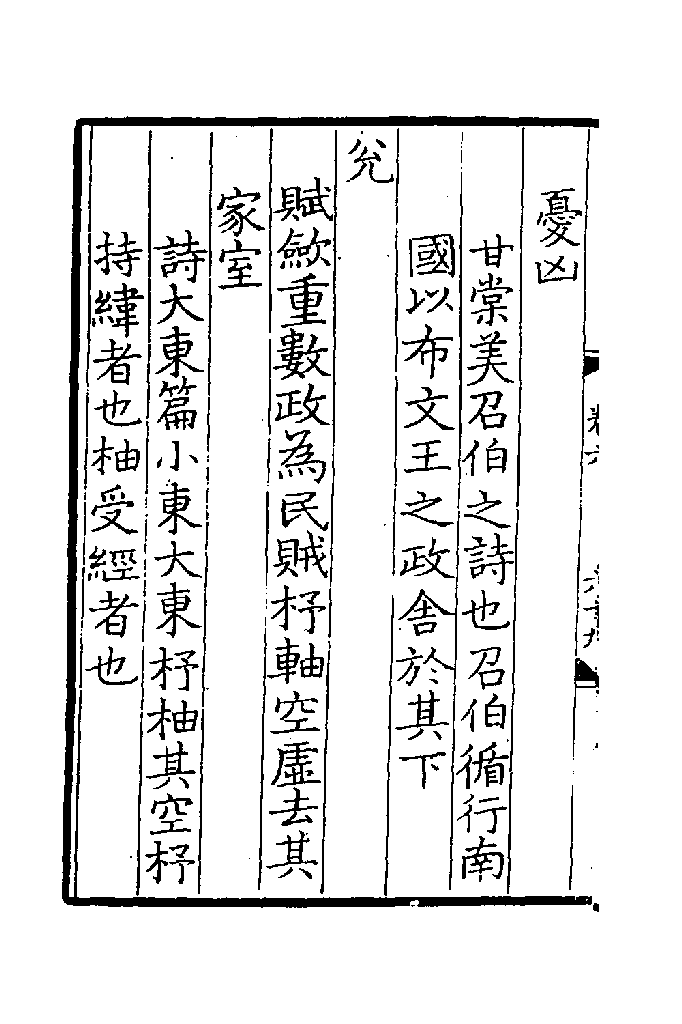 憂凶
甘棠美召伯之詩也召伯循行南
國以布文王之政舍於其下
兊
賦歛重數政為民賊杼軸空虛去其
家室
詩大東篇小東大東杼柚其空杼
持緯者也柚受經者也